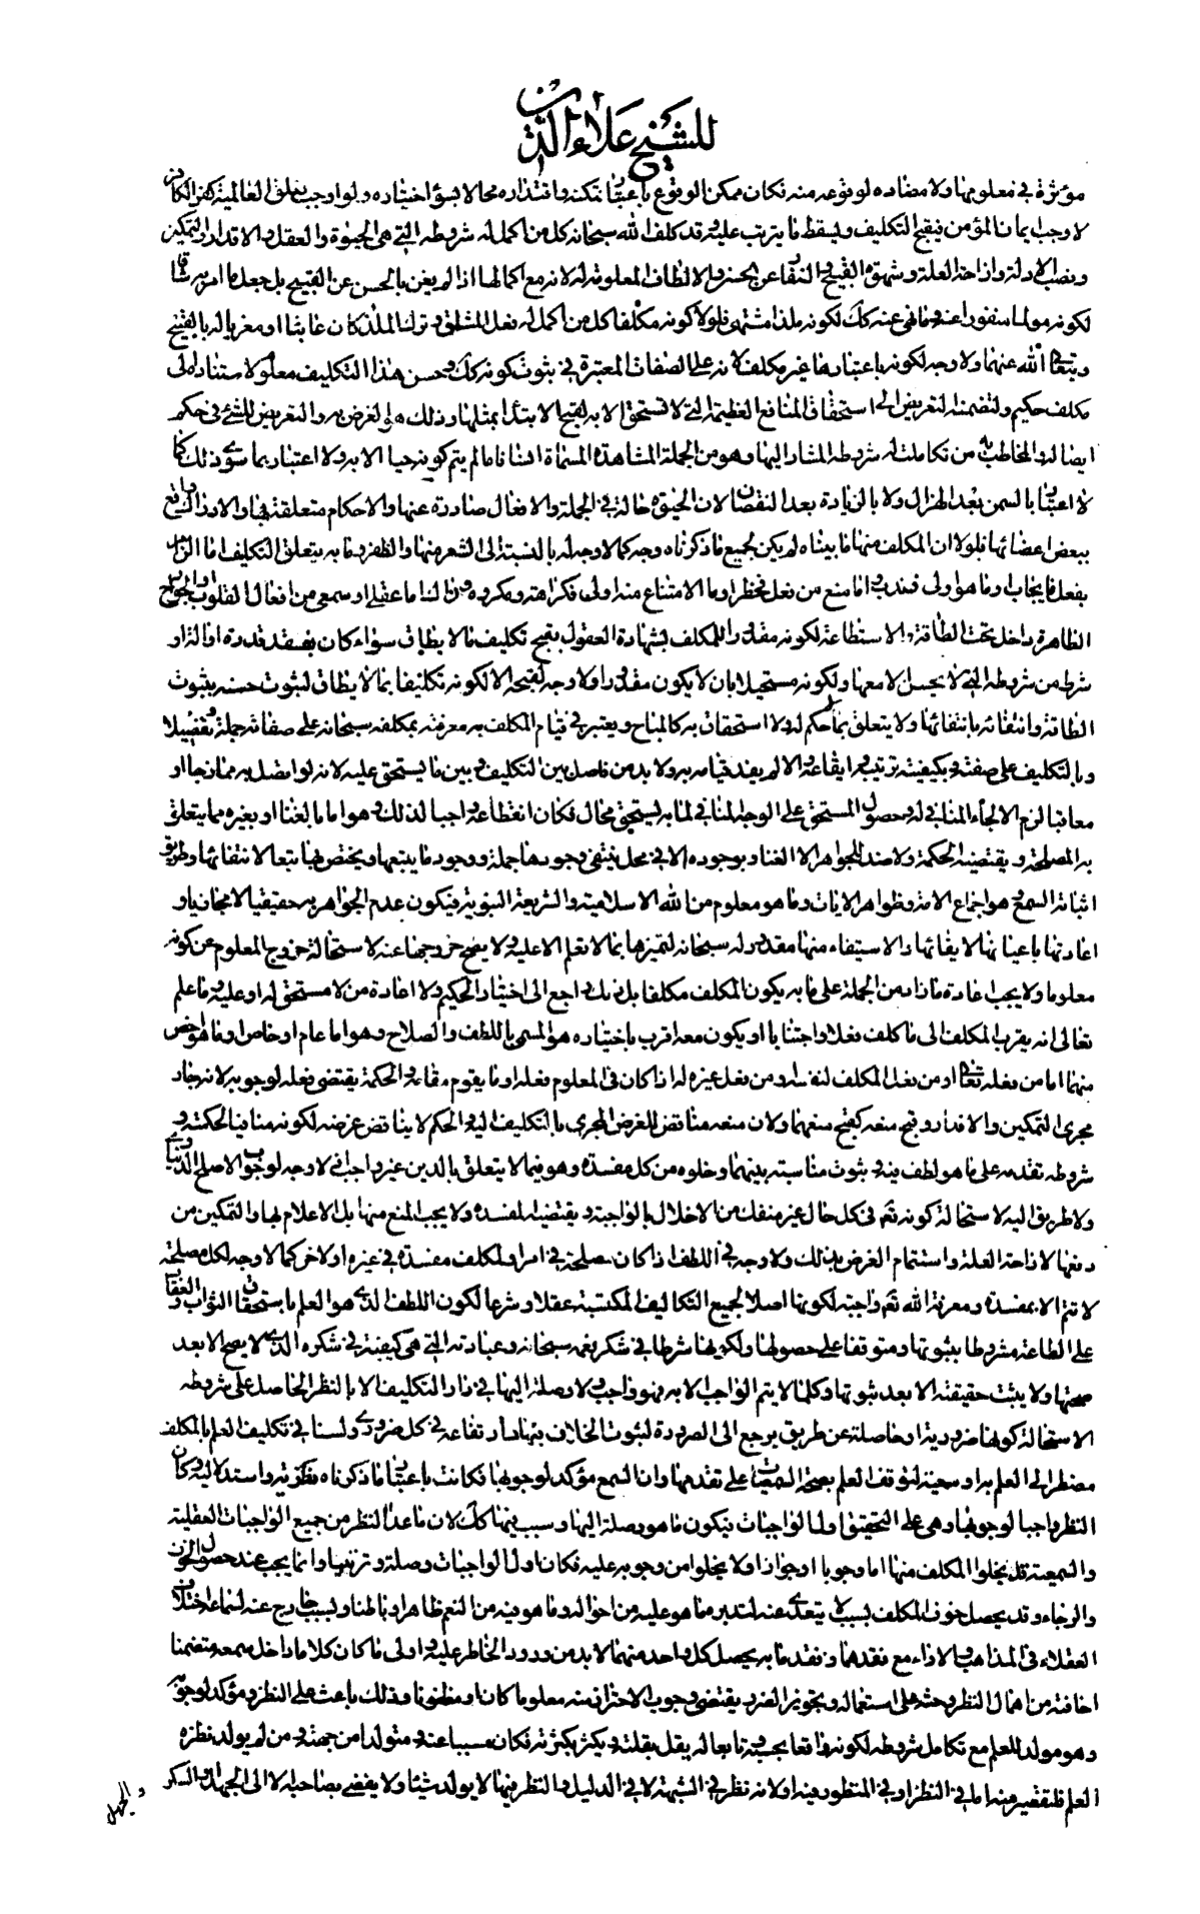 للشيخ علاء الدين
مؤثرة في معلومها ولا مضاده لوقوعه منه فكان ممكن الوقوع باعتبار تمكنه واقتداره محالا بسؤ اختياره ولو اوجب تعلق العالمية كفر الكافر
لاوجب ايمان المؤمن فيقبح التكليف ويسقط ما يترتب عليه وقد كلف الله سبحانه كل من اكمل له شروطه التي هي الحيوة والعقل والاقدار والتمكين
ونصب الادلة وازاحة العلة وشهوة القبيح والنفار عن الحسن والالطاف المعلومة له لانه مع اكمالها اذا لم يغن بالحسن عن القبيح بل جعل ما امر به شاقا
لكونه مولما منفورا عنه وما نهى عنه كك لكونه ملذا مشتهى فلولا كونه مكلفا كل من اكمل له بفعل المشاق وترك الملاذ كان عابثا او مغريا له بالقبيح
ويتعالى الله عنهما ولا وجه لكونه باعتبارها غير مكلف لانه على الصفات المعتبرة في ثبوت كونه كك وحسن هذا التكليف معلوم لاستناده الى
مكلف حكيم ولتضمنه التعريض الى استحقاق المنافع العظيمة التي لا تستحق الا به لقبح الابتداء بمثلها وذلك هو الغرض به والتعريض للشئ في حكم
ايصاله والمخاطب به من تكاملت له شروطه المشار اليها وهو من الجملة المشاهدة المسماة انسانا ما لم يتم كونه حيا الا به ولا اعتبار بما سوى ذلك كما
لا اعتبار بالسمن بعد الهزال ولا بالزيادة بعد النقصان لان الحيوة حالة في الجملة والافعال صادرة عنها والاحكام متعلقة بها والادراك واقع
ببعض اعضائها فلولا ان المكلف منها ما بيناه لم يكن لجميع ما ذكرناه وجه كما لا وجه له بالنسبة الى الشعر منها والظفر وما به يتعلق التكليف اما الزام
بفعل فايجاب وما هو اولى فندب واما منع من فعل فحظر او ما الامتناع منه اولى فكراهته ومكروه وذلك اما عقلي او سمعي من افعال القلوب او الجوارح
الظاهرة داخل تحت الطاقة والاستطاعة لكونه مقدورا للمكلف لشهادة العقول بقبح تكليف ما لا يطاق سواء كان بفقد قدرة او الة او
شرط من شروطه التي لا يحسن الا معها ولكونه مستحيلا بان لا يكون مقدورا ولا وجه لقبحه الا لكونه تكليفا بما لا يطاق لثبوت حسنه بثبوت
الطاقة وانتفائه بانتفائها ولا يتعلق بما لا حكم له ولا استحقاق به كالمباح ويعتبر في قيام المكلف به معرفته بمكلفه سبحانه على صفاته جملة وتفصيلا
وبالتكليف على صفته وبكيفية ترتيبه وايقاعه والا لم يفد قيامه به ولا بد من فاصل بين التكليف وبين ما يستحق عليه لانه لو اتصل به ممازجا او
معاقبا لزم الالجاء المنافي له وحصول المستحق على الوجه المنافي لما به يستحق محال فكان انقطاعه واجبا لذلك وهو اما ما بالفنا او بغيره مما يتعلق
به المصلحة ويقتضيه الحكمة ولا ضد للجواهر الا الفناء وبوجوده لا في محل ينتفي وجودها جملة ووجود ما يتبعها ويختص بها تبعا لانتفائها وطريق
اثباته السمع وهو اجماع الامة وظواهر الايات وما هو معلوم من الملة الاسلامية والشريعة النبوية فيكون عدم الجواهر به حقيقيا لا مجازيا و
اعادتها باعيانها لايفائها والاستيفاء منها مقدور له سبحانه لتميزها بما لا نعلم الا عليه ولا يصح خروجها عنه لاستحالة خروج المعلوم عن كونه
معلوما ولا يجب اعادة ما زاد من الجملة على ما به يكون المكلف مكلفا بل ذلك راجع الى اختيار الحكيم ولا اعادة من لا مستحق له او عليه وما علم
تعالى انه يقرب المكلف الى ما كلف فعلا واجتنابا او يكون معه اقرب باختياره هو المسمى باللطف والصلاح وهو اما عام او خاص وما هو اخص
منهما اما من فعله تعالى او من فعل المكلف لنفسه او من فعل غيره له اذا كان في المعلوم فعله او ما يقوم مقامه والحكمة يقتضي فعله لوجوبه لانه جار
مجرى التمكين والاقدار وقبح منعه كقبح منعهما ولان منعه مناقض للغرض المجرى بالتكليف اليه والحكيم لا يناقض غرضه لكونه منافيا لحكمته و
شروطه تقدمه على ما هو لطف فيه وثبوت مناسبته بينهما وخلوه من كل مفسدة وهو فيما لا يتعلق بالدين غير واجب اذ لا وجه لوجوب الاصلح الدنياوي
ولا طريق اليه لاستحالة كونه تعم في كل حال غير منفك من الاخلال بالواجبة ويقتضيه المفسدة ولا يجب المنع منها بل الاعلام بها والتمكين من
دفعها لازاحة العلة واستتمام الغرض بذلك ولا وجه في اللطف اذا كان مصلحة في امر او لمكلف مفسدة في غيره او لاخر كما لا وجه لكل مصلحة
لا تتم الا بمفسدة ومعرفة الله تعم واجبة لكونها اصلا لجميع التكاليف المكتسبة عقلا وشرعا لكون اللطف الذي هو العلم باستحقاق الثواب والعقاب
على الطاعة مشروطا بثبوتها ومتوقفا على حصولها ولكونها شرطا في شكر نعمه سبحانه وعبادته التي هي كيفية في شكره الذي لا يصح الا بعد
صحتها ولا يثبت حقيقته الا بعد ثبوتها وكلما لا يتم الواجب الا به فهو واجب ولا وصلة اليها في دار التكليف الا بالنظر الحاصل على شروطه
الاستحالة كونها ضرورية او حاصلة عن طريق يرجع الى الضرورة لثبوت الخلاف بها وارتفاعه في كل ضروري ولسنا في تكليف العلم بالمكلف
مضطر الى العلم به او سمعية لتوقف العلم بصحة السمعيات على تقدمها وان السمع مؤكد لوجوبها فكانت باعتبار ما ذكرناه نظرية واستدلالية وكان
النظر واجبا لوجوبها وهي على التحقيق اول الواجبات فيكون ما هو وصلة اليها وسبب فيها كك لان ما عدا النظر من جميع الواجبات العقلية
والسمعية قد يخلوا المكلف منها اما وجوبا او جوازا ولا يخلوا من وجوبه عليه فكان اول الواجبات وصلة وترتيبا وانما يجب عند حصول الخوف
والرجاء وقد يحصل خوف المكلف لسبب لا يتعدى عنه لتدبر ما هو عليه من احواله وما هو فيه من النعم ظاهرا وباطنا ولسبب خارج عنه لسماعه اختلاف
العقلاء في المذاهب والاراء مع فقدهما وفقد ما به يحصل كل واحد منهما لا بد من ورود الخاطر عليه واولى ما كان كلاما داخل سمعه متضمنا
اخافته من اهمال النظر وحثه على استعماله وتجويز الضرر يقتضي وجوب الاحتراز منه معلوما كان او مظنونا وذلك باعث على النظر ومؤكد لوجوبه
وهو مولد للعلم مع تكامل شروطه لكونه واقعا بحسبه وتابعا له يقل بقلته ويكثر بكثرته فكان مسببا عنه ومتولدا من جهته ومن لم يولد نظره
العلم فلتقصير منه اما في النظر او في المنظور فيه او لانه نظر في الشبهة لا في الدليل والنظر فيها لا يولد شيئا ولا يفضي بصاحبه الا الى الجهل والشك
والجهل